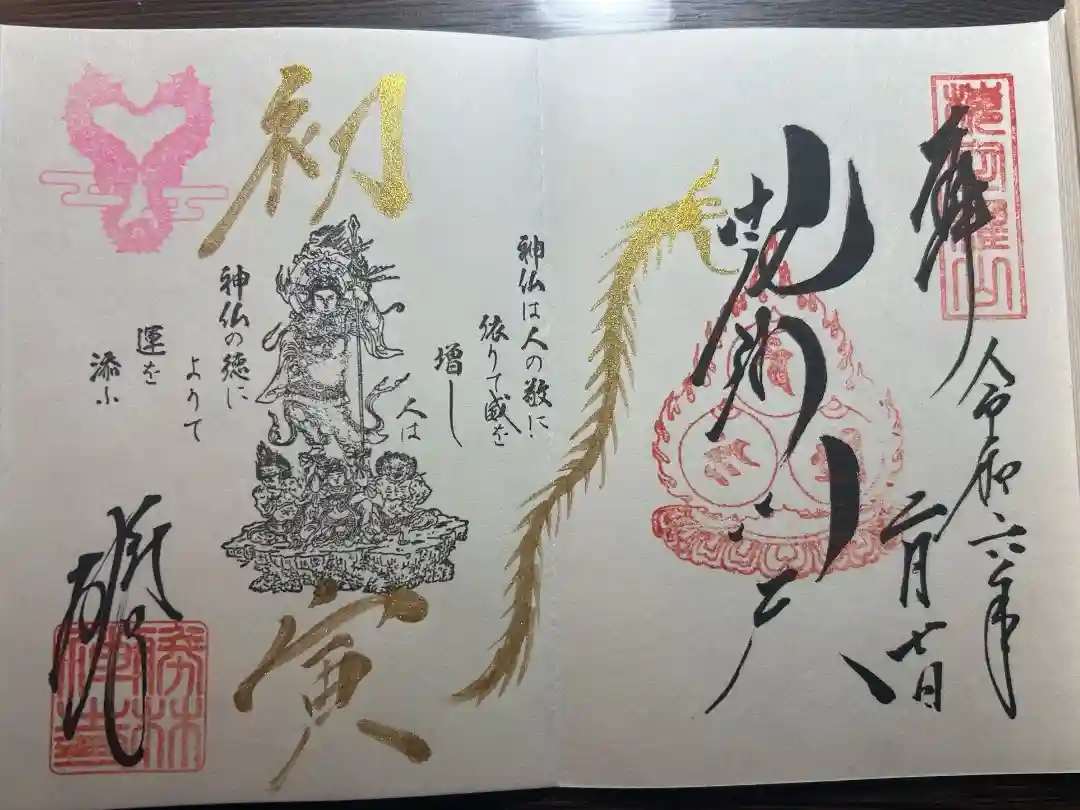 奉拝
令和六年
二月七日
毘沙門天
初寅
神仏は人の敬に
依りて威を
増し
人は
神仏の徳に
よりて
運を
添ふ